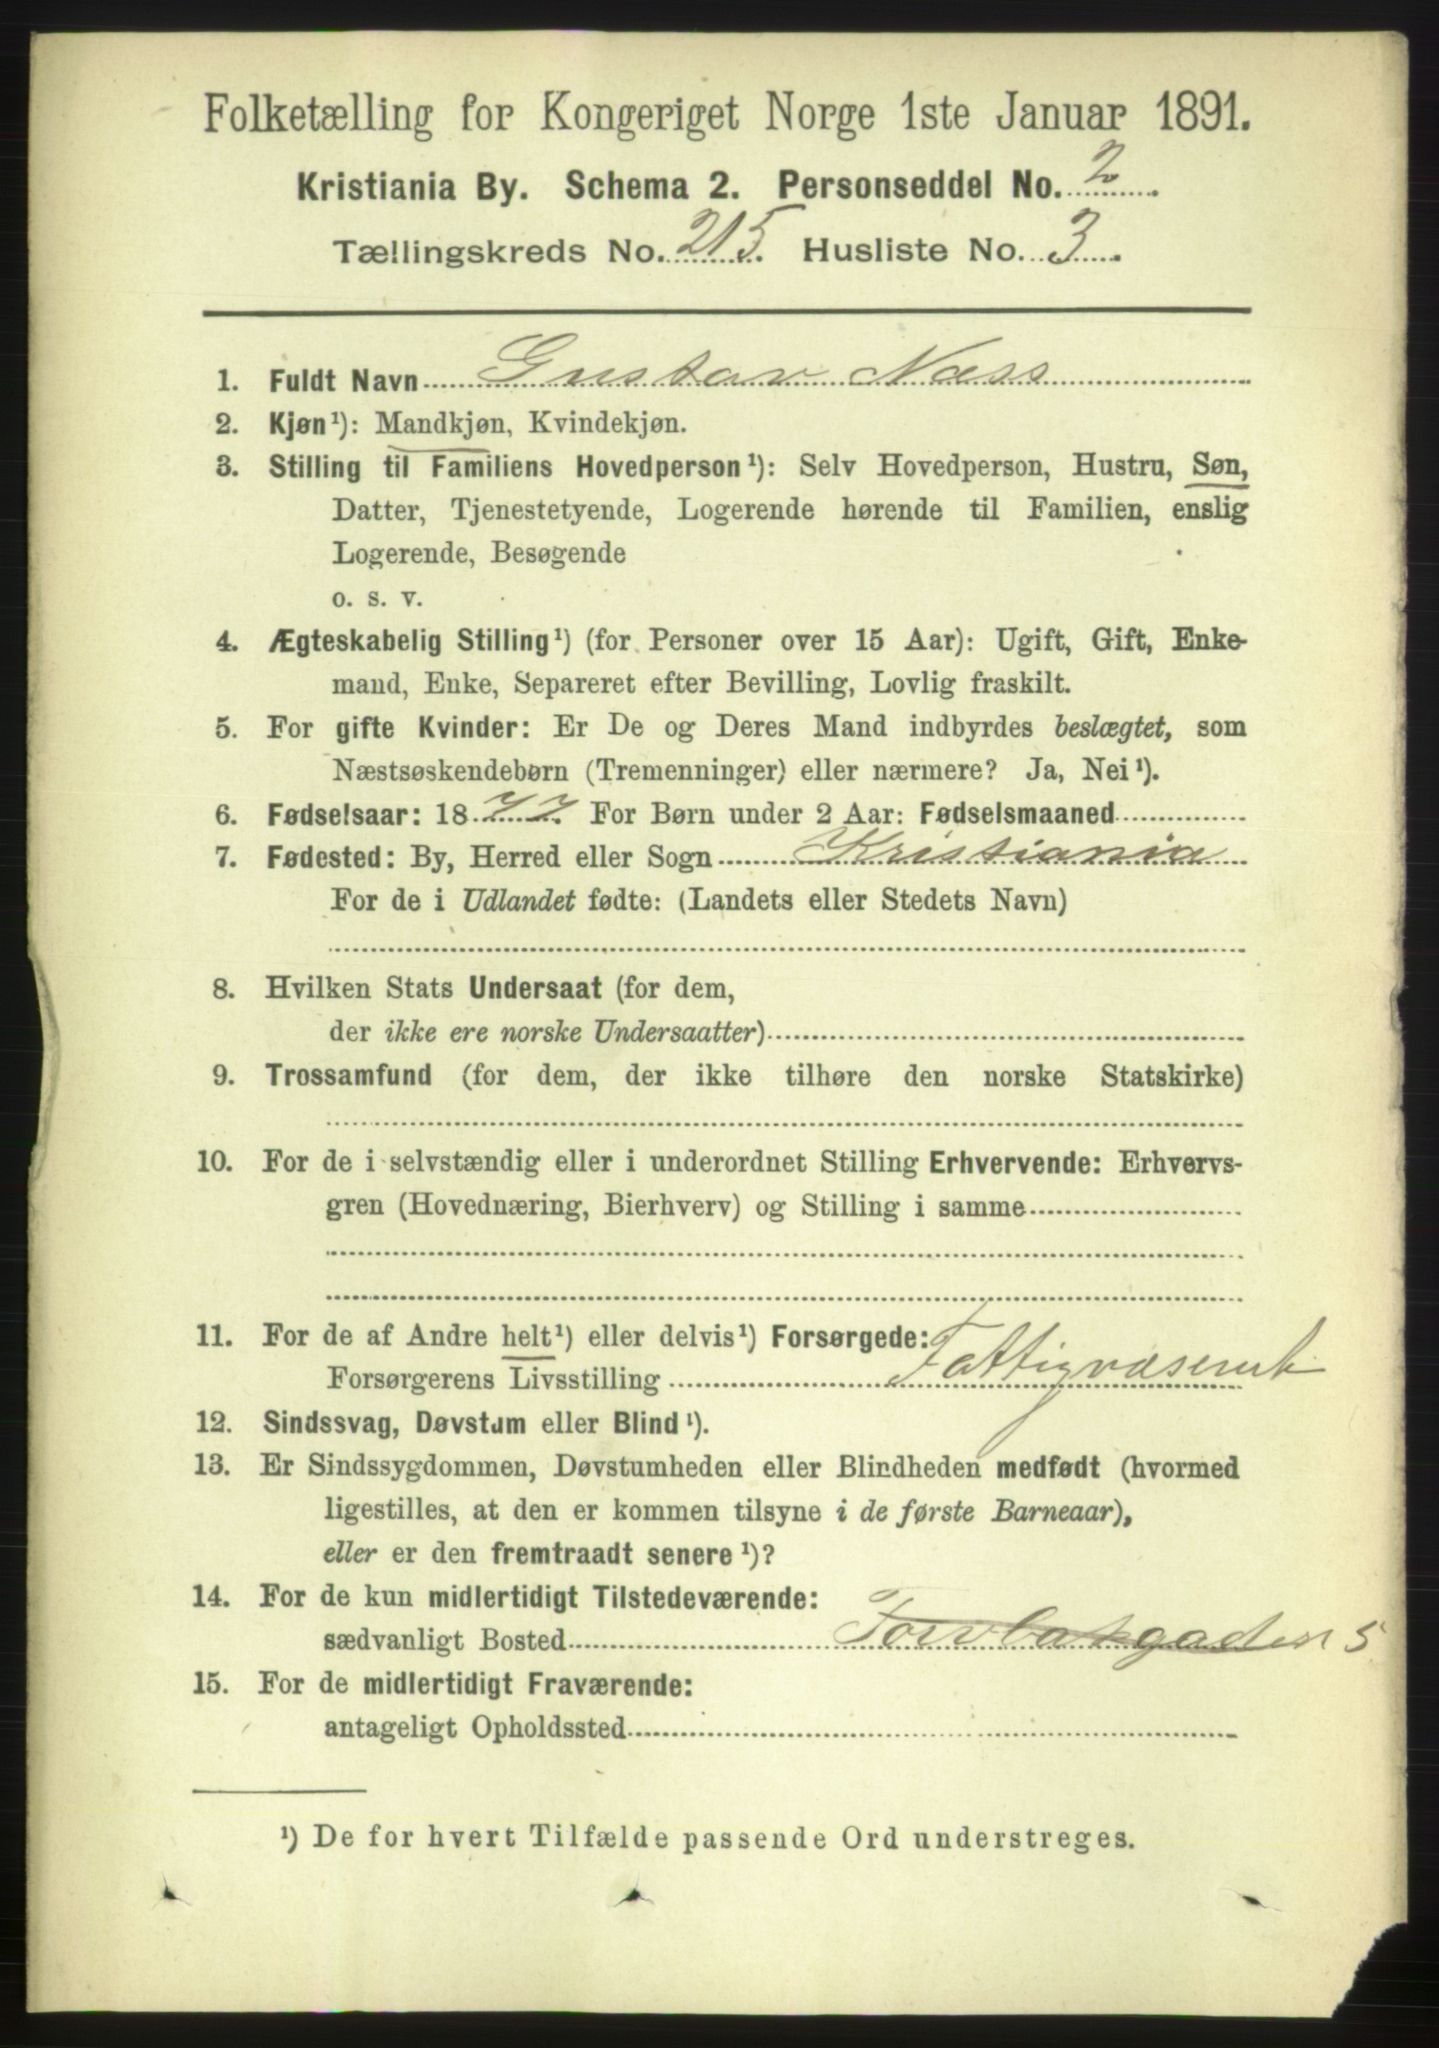 Folketælling for Kongeriget Norge 1ste Januar 1891.
Kristiania By. Schema 2. Personseddel No. 2.
Tællingskreds No. 215. Husliste No. 3.
1. Fuldt Navn Gustav Næss
2. Kjøn¹): Mandkjøn, Kvindekjøn.
3. Stilling til Familiens Hovedperson¹): Selv Hovedperson, Hustru, Søn,
Datter, Tjenestetyende, Logerende hørende til Familien, enslig
Logerende, Besøgende
o. s. v.
4. Ægteskabelig Stilling¹) (for Personer over 15 Aar): Ugift, Gift, Enke-
mand, Enke, Separeret efter Bevilling, Lovlig fraskilt.
5. For gifte Kvinder: Er De og Deres Mand indbyrdes beslægtet, som
Næstsøskendebørn (Tremenninger) eller nærmere? Ja, Nei¹).
6. Fødselsaar: 1877. For Børn under 2 Aar: Fødselsmaaned
7. Fødested: By, Herred eller Sogn Kristiania
For de i Udlandet fødte: (Landets eller Stedets Navn)
8. Hvilken Stats Undersaat (for dem,
der ikke ere norske Undersaatter)
9. Trossamfund (for dem, der ikke tilhøre den norske Statskirke)
10. For de i selvstændig eller i underordnet Stilling Erhvervende: Erhvervs-
gren (Hovednæring, Bierhverv) og Stilling i samme
11. For de af Andre helt¹) eller delvis¹) Forsørgede:
Forsørgerens Livsstilling Fattigvæsenet
12. Sindssvag, Døvstum eller Blind¹).
13. Er Sindssygdommen, Døvstumheden eller Blindheden medfødt (hvormed
ligestilles, at den er kommen tilsyne i de første Barneaar),
eller er den fremtraadt senere¹)?
14. For de kun midlertidigt Tilstedeværende:
sædvanligt Bosted 5
15. For de midlertidigt Fraværende:
antageligt Opholdssted
¹) De for hvert Tilfælde passende Ord understreges.